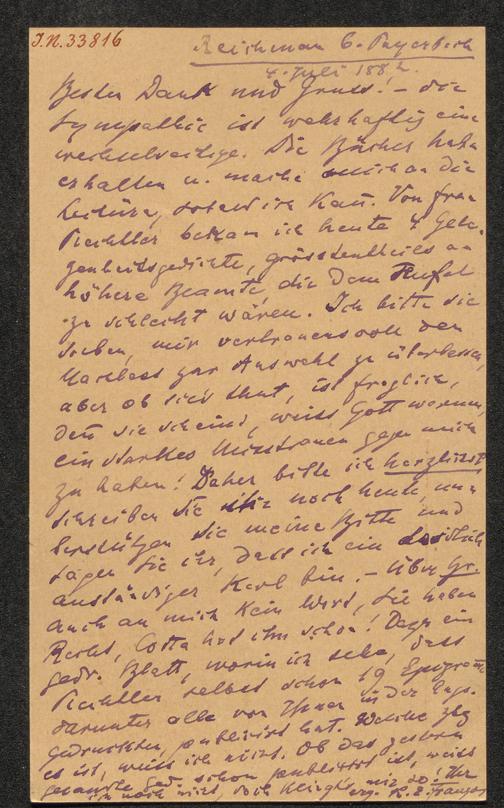 I.N. 33816
Reichenau b. Payerbach
4. Juli 1882.
Besten Dank und Gruss! – die
Sympathie ist wahrhaftig eine
wechselseitige. Die Bücher habe
erhalten u. mache mich an die
Lectüre, sobald ich kañ. Von Frau
bekam ich heute 4 Gele-
genheitsgedichte, grösstentheils an
höhere Beamte, die dem
zu schlecht wären. Ich bitte sie
soeben, mir vertrauensvoll den
Nachlass zur Auswahl zu überlassen,
aber ob sie's thut, ist fraglich,
deñ sie scheint, weiss Gott warum,
ein starkes Misstrauen gegen mich
zu haben! Daher bitte ich herzlichst
schreiben Sie ihr noch heute, un-
terstützen Sie meine Bitte und
sagen Sie ihr, dass ich ein
anständiger Kerl bin. – Über Gr.
auch an mich kein Wort, Sie haben
Recht, Cotta hat ihn schon! Dazu ein
gedr. Blatt, worin ich sehe, dass
selbst schon 19 Epigramme
darunter alle von Ihnen in der
gedruckten, publicirt hat. Welche Ztg
es ist, weiss ich nicht. Ob das gestern
gesandte Ged. schon publicirt ist, weiss
ich noch nicht, doch mir so! Ihr
erg. K. E. Franzos